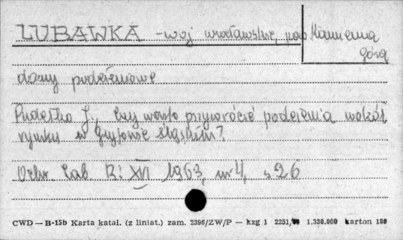 LUBAWKA - woj wrocławskie, pow Kamienna
Góra
domy podcieniowe
Pudełko J., Czy warto przywrócić podcienia wokół
rynku w Gryfowie Śląskim?
Ochr. Zab R: XVI 1963, nr 4, s 26
CWD — B-15b Karta katal. (z liniat.) zam. 2396/ZW/P — kzg 1 2251, 1.330.000 karton 180